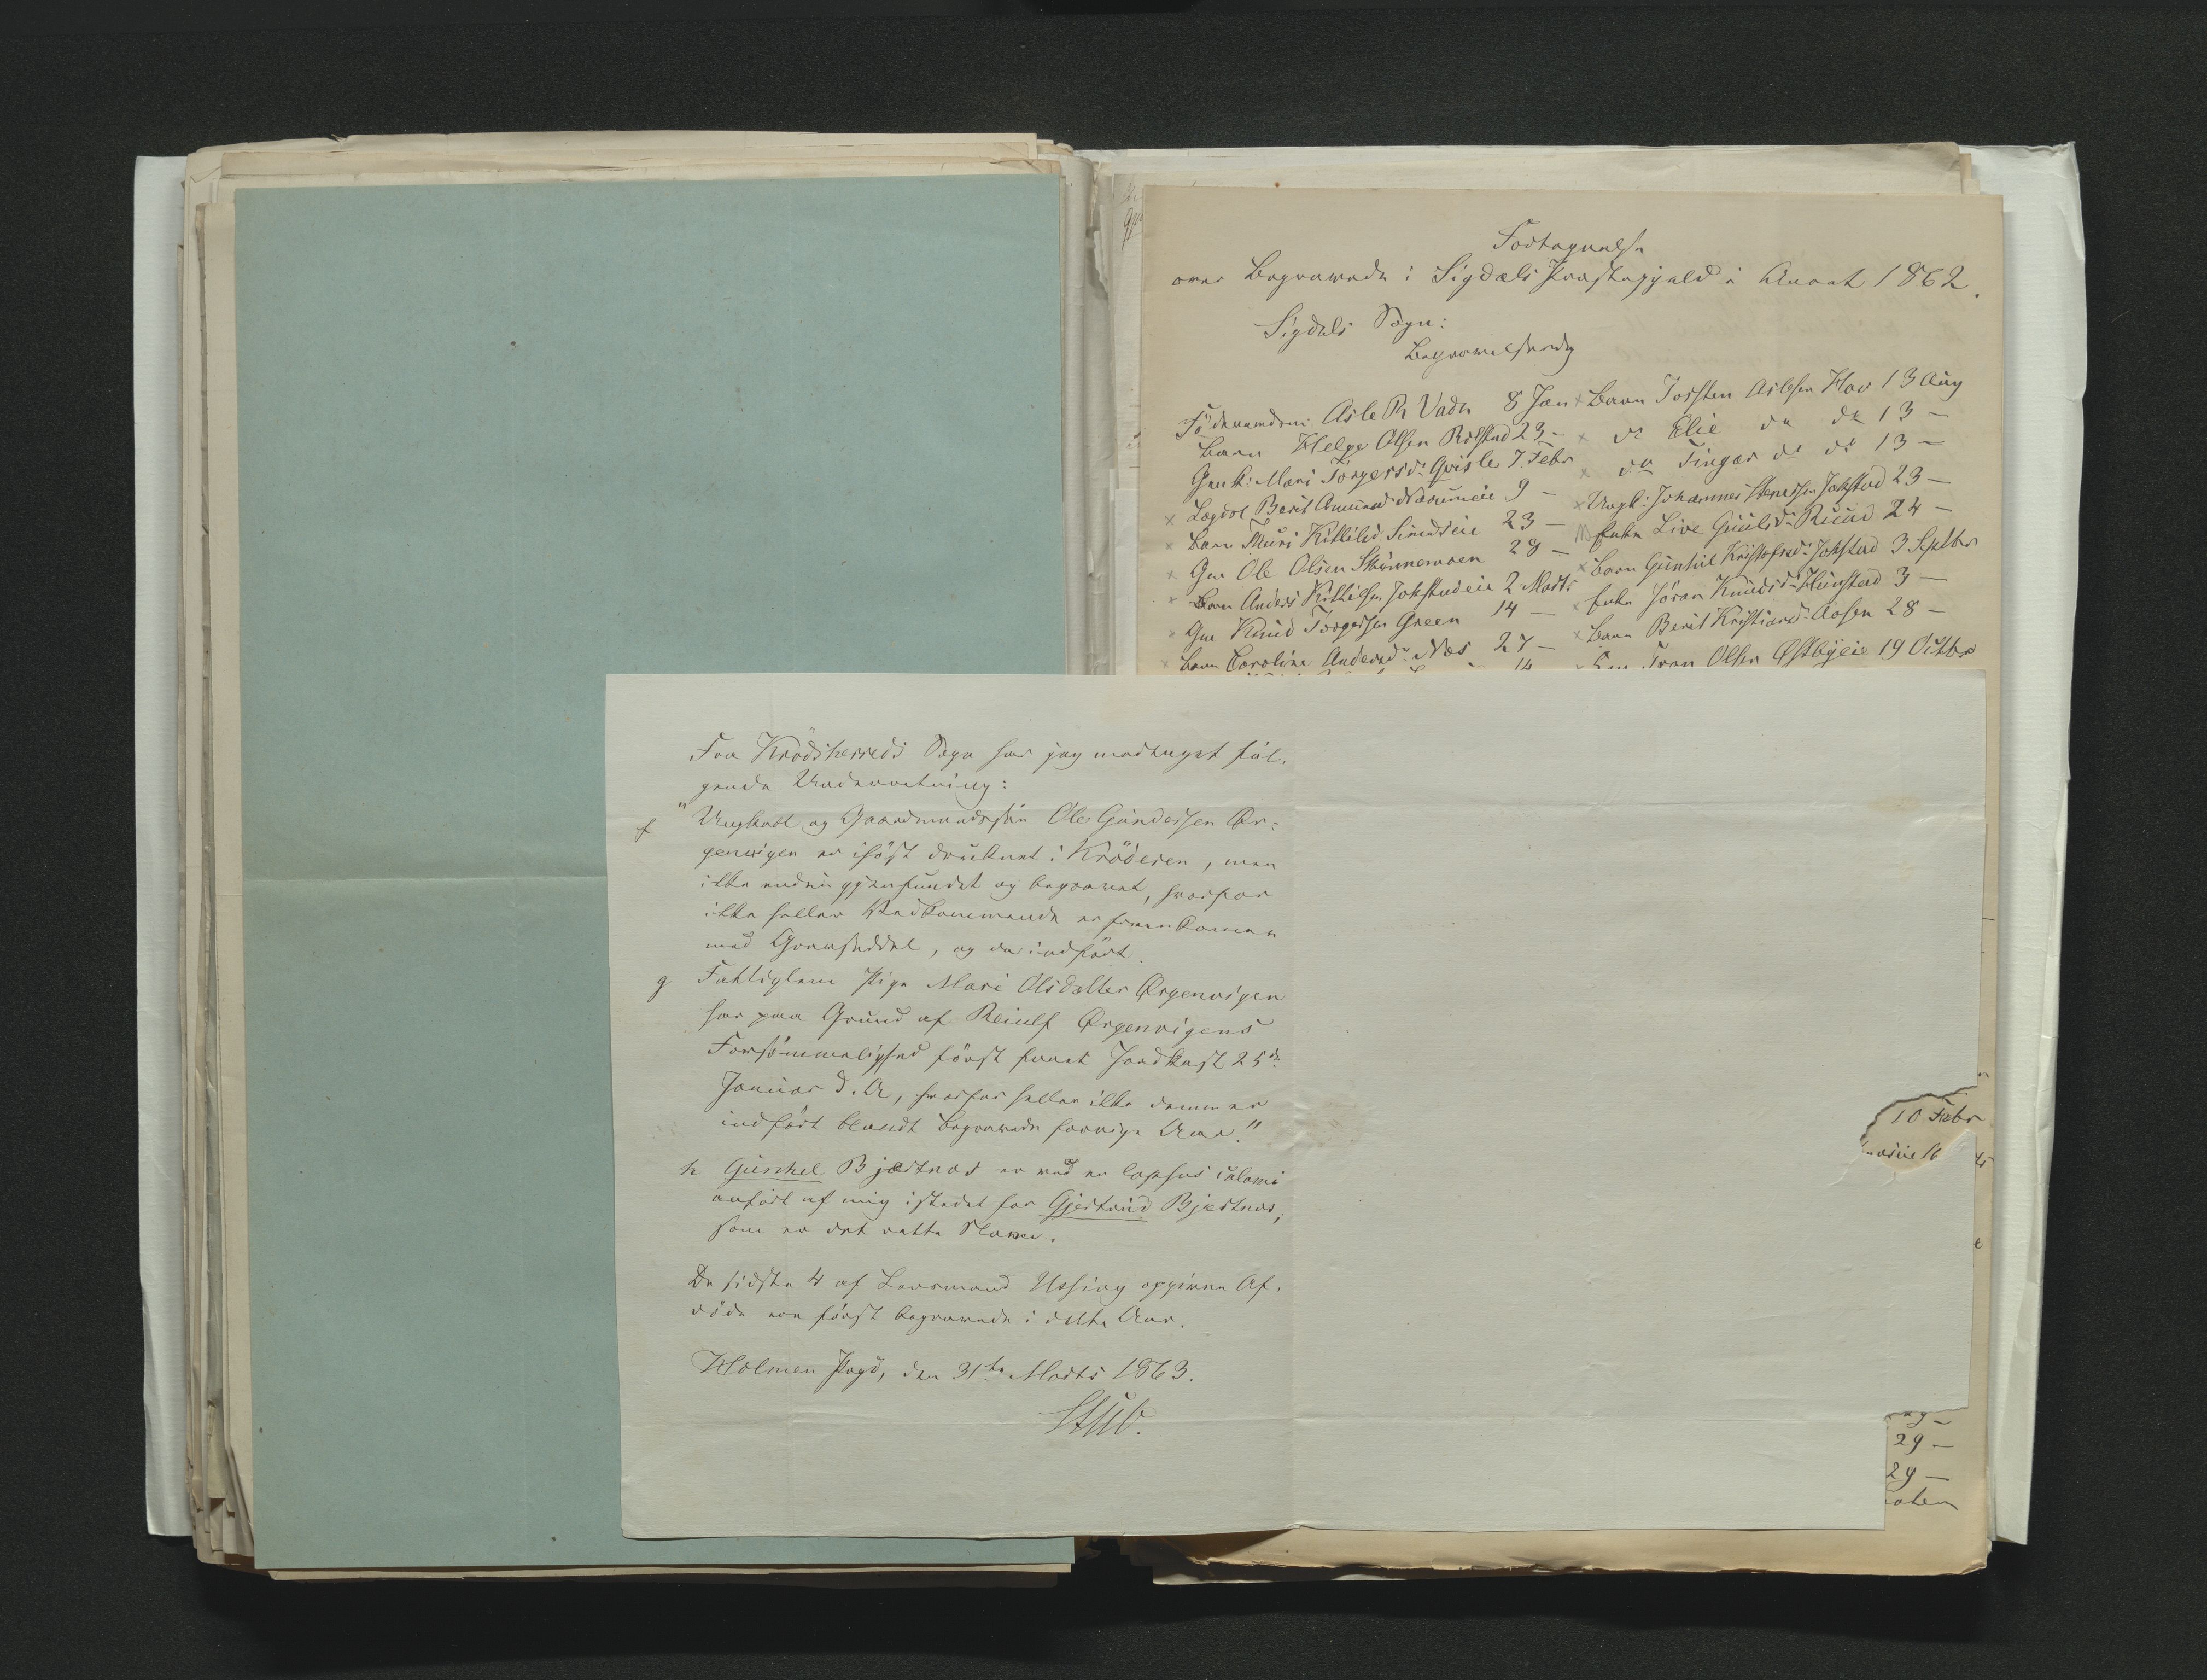 Fortegnelse
over Begravede i Sigdals Præstegjeld i Aaret 1862.
Sigdals Sogn:
Begravelsesdag
Föderaadsm: Asle P. Vadn 8 Jan
Barn Helge Olsen Rolstad 23 –
Gaardk: Mari Torgersdr Grisle 7 Febr
x Lægdsl Berit Amundsd 9 –
x Barn Thuri Kittilsd Simidseie 23 –
x Gm Ole Olsen Skinnemoen 28 –
x Barn Anders Kittilsen Jokstadeie 2 Marts
x Gm Knud Torgersen Green 14 –
x Barn Caroline Andersdr Næs 27 –
14
x Barn Torsten Aslesen Hov 13 Aug
x do Elie do do 13 –
x do Fingar do do 13 –
x Ungk: Johannes Stenersen Jokstad 23 –
Enke Live Guulsdr Ruud 24 –
x Barn Gunhil Kristofersdr Jokstad 3 Septbr
x Enke Jöran Knudsdr Hunstad 3 –
x Barn Berit Kristiansdr Aasen 28 –
Iver Olsen Østbyeie 19 Octbr
Fra Krödsherreds Sogn har jeg modtaget föl-
gende Underretning:
f "Ungkarl og Gaardmandssön Ole Gundersen Ør-
genvigen er ihöst druknet i Kröderen, men
ikke endnu gjenfundet og begravet, hvorfor
ikke heller Vedkommende er fremkommen
med Gravseddel, og da indfört.
g Fattiglem Pige Mari Olsdatter Ørgenvigen
har paa Grund af Reiulf Ørgenvigens
Forsömmelighed först faaet Jordkast 25de
Januar d. A, hvorfor heller ikke denne er
indfört blandt Begravede forrige Aar."
h Gunhel Bjertnæs er ved en lapsus calami
anfört af mig istedet for Gjertrud Bjertnæs,
som er det rette Navn.
De sidste 4 af Lensmand Ussing opgivne Af-
döde ere först begravede i dette Aar.
Holmen Prgd, den 31te Marts 1863.
Stub.
10 Febr
16
29 –
29 –